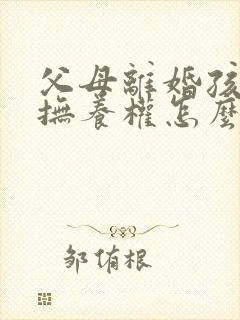 父母離婚孩
撫養權怎麼
鄒侑根